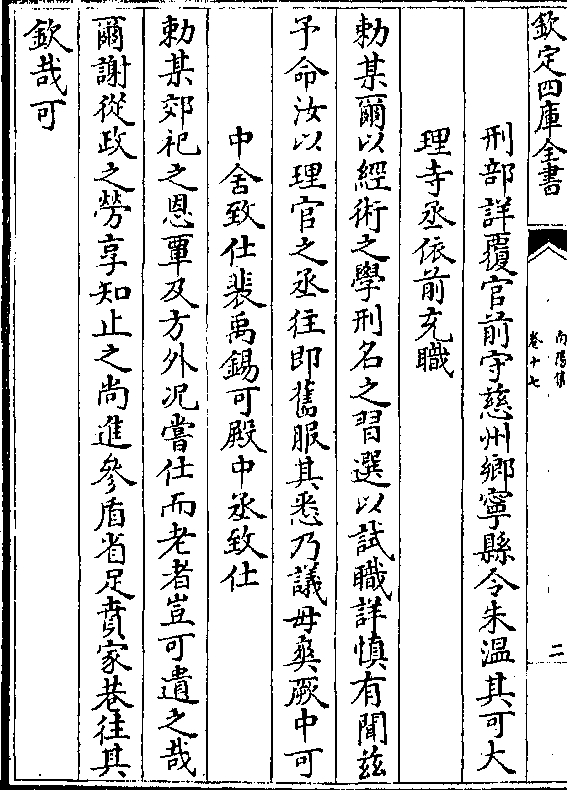 欽定四庫全書
南陽集
卷十七
二
刑部詳覆官前守慈州鄉寧縣令朱温其可大
理寺丞依前充職
勅某爾以經術之學刑名之習選以試職詳慎有聞兹
予命汝以理官之丞往即舊服其悉乃議毋爽厥中可
中舍致仕裴禹錫可殿中丞致仕
勅某郊祀之恩覃及方外况嘗仕而老者豈可遺之哉
爾謝從政之勞享知止之尚進參盾省足賁家巷往其
欽哉可